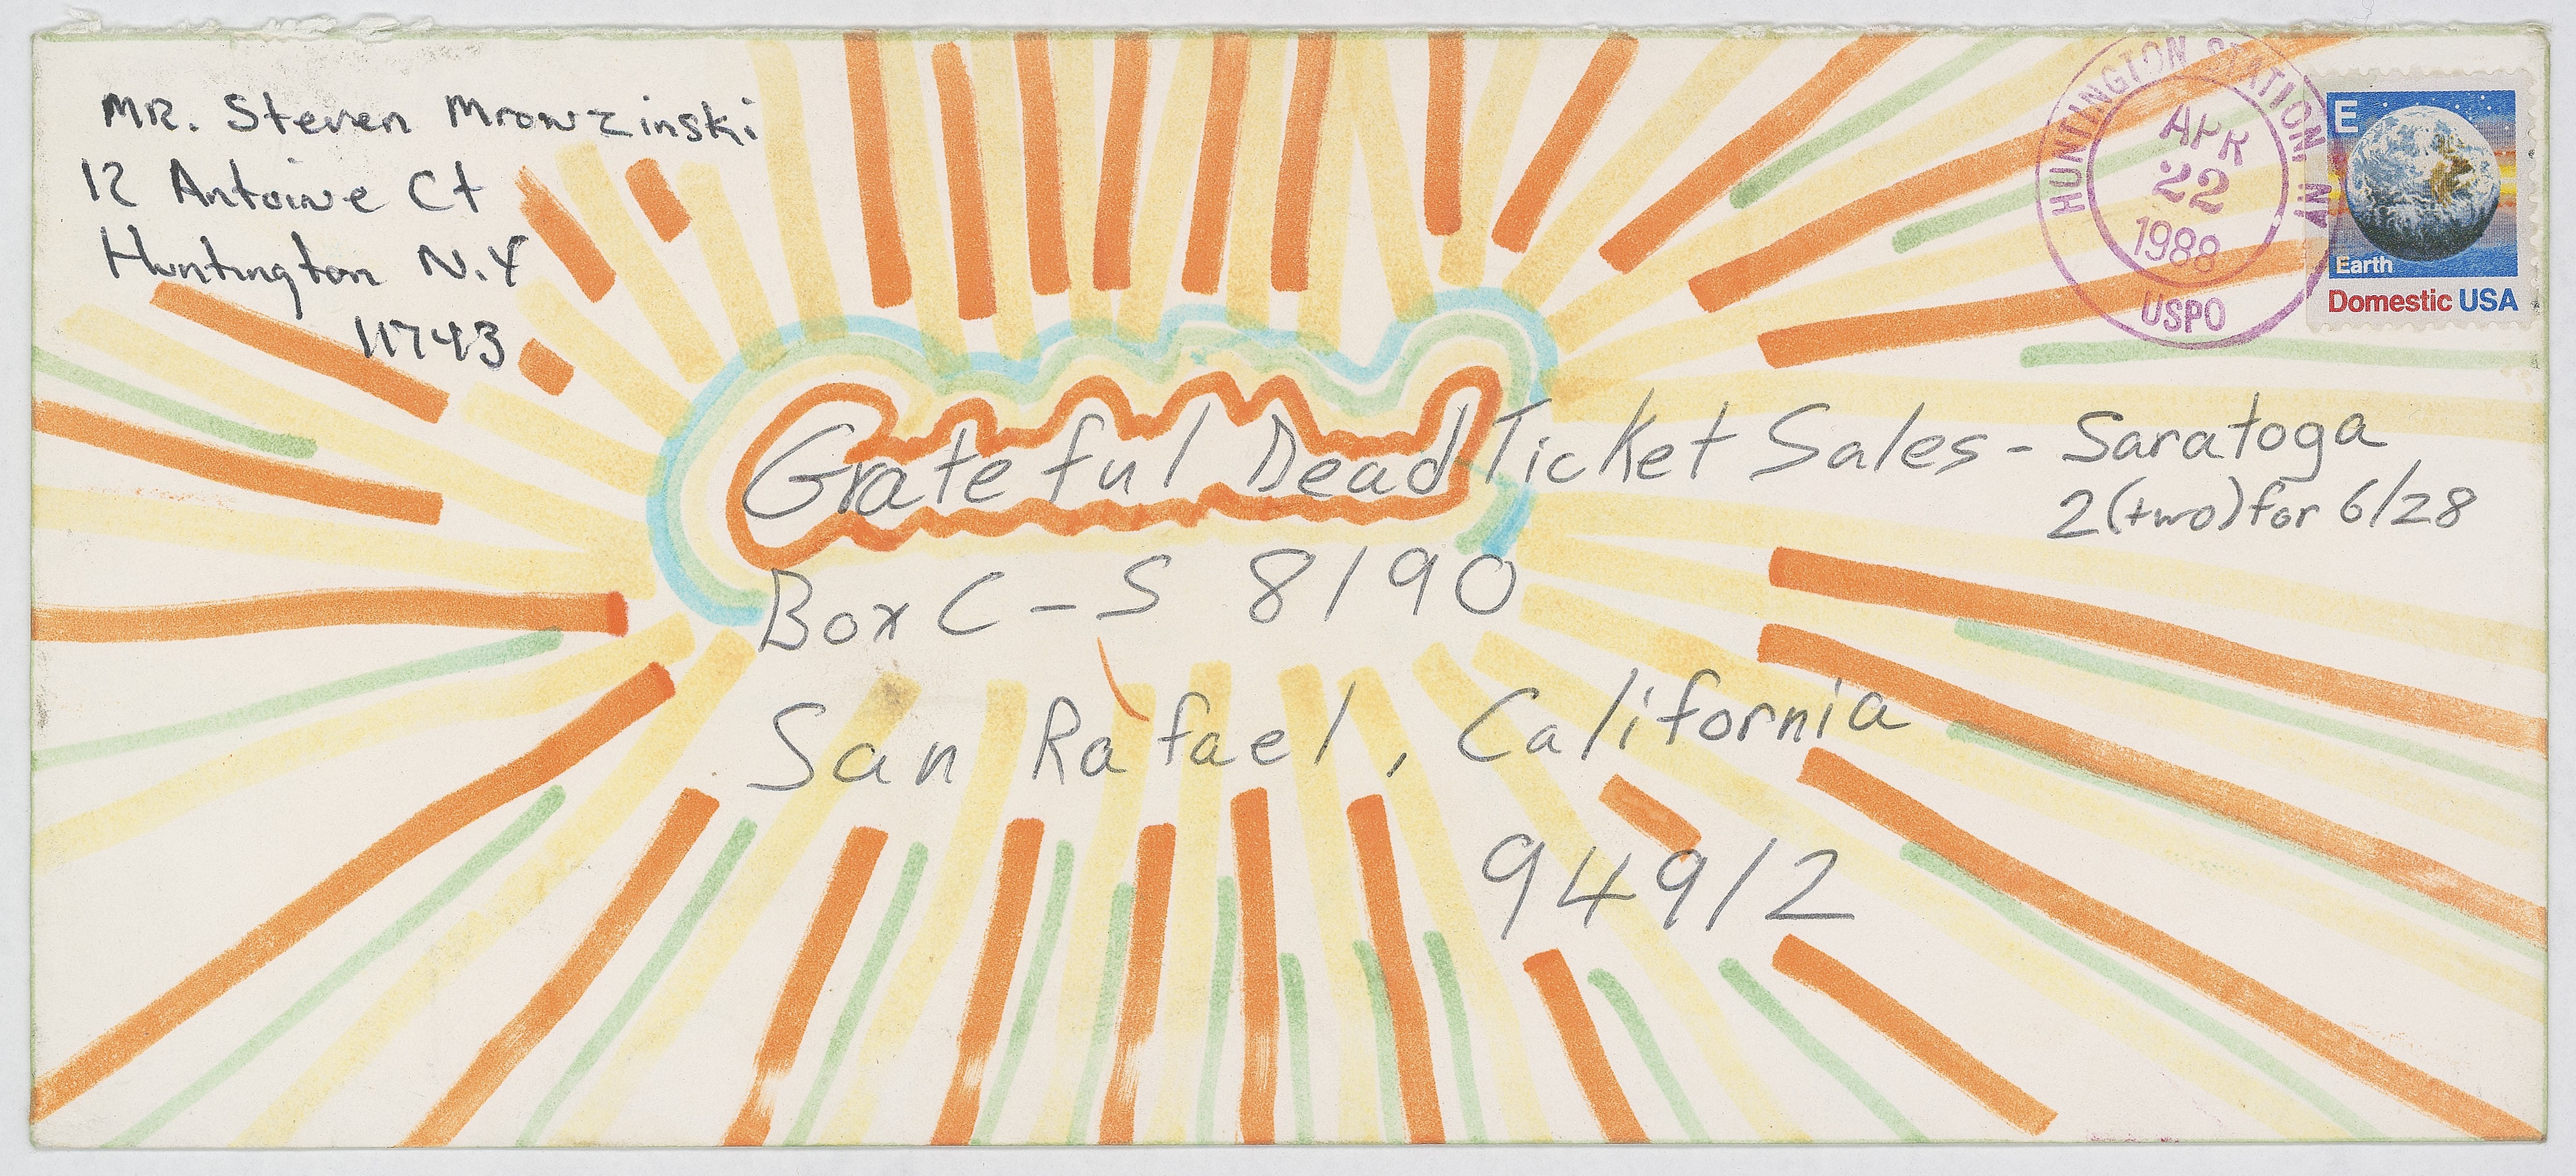 MR. Steven Mrowzinski
12 Antoine Ct
Huntington N.Y
11743
HUNTINGTON STATION NY
APR
22
1988
USPO
E
Earth
Domestic USA
Grateful Dead Ticket Sales - Saratoga
2 (two) for 6/28
Box C-S 8190
San Rafael, California
94912